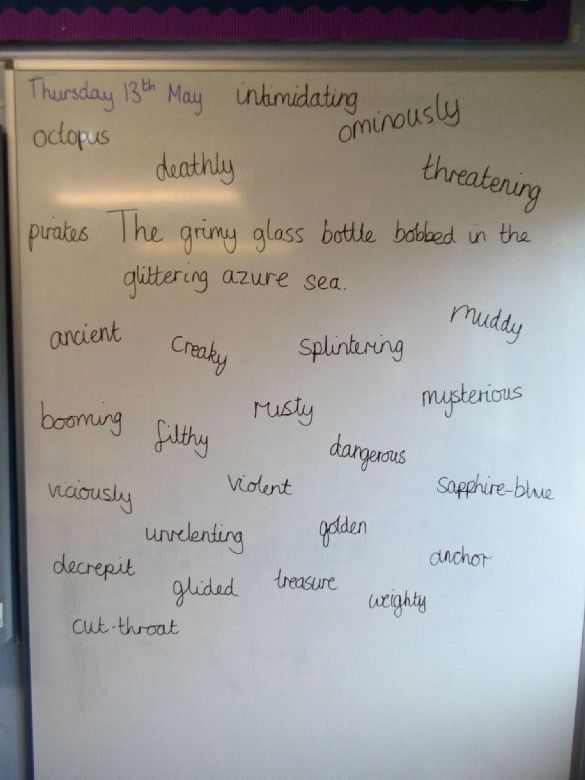 Thursday 13th May intimidating
ominously
octopus
deathly
threatening
pirates The grimy glass bottle bobbed in the
glittering azure sea.
muddy
ancient creaky splintering
mysterious
booming filthy rusty
dangerous
viciously violent sapphire-blue
unrelenting golden
decrepit anchor
glided treasure
weighty
cut-throat